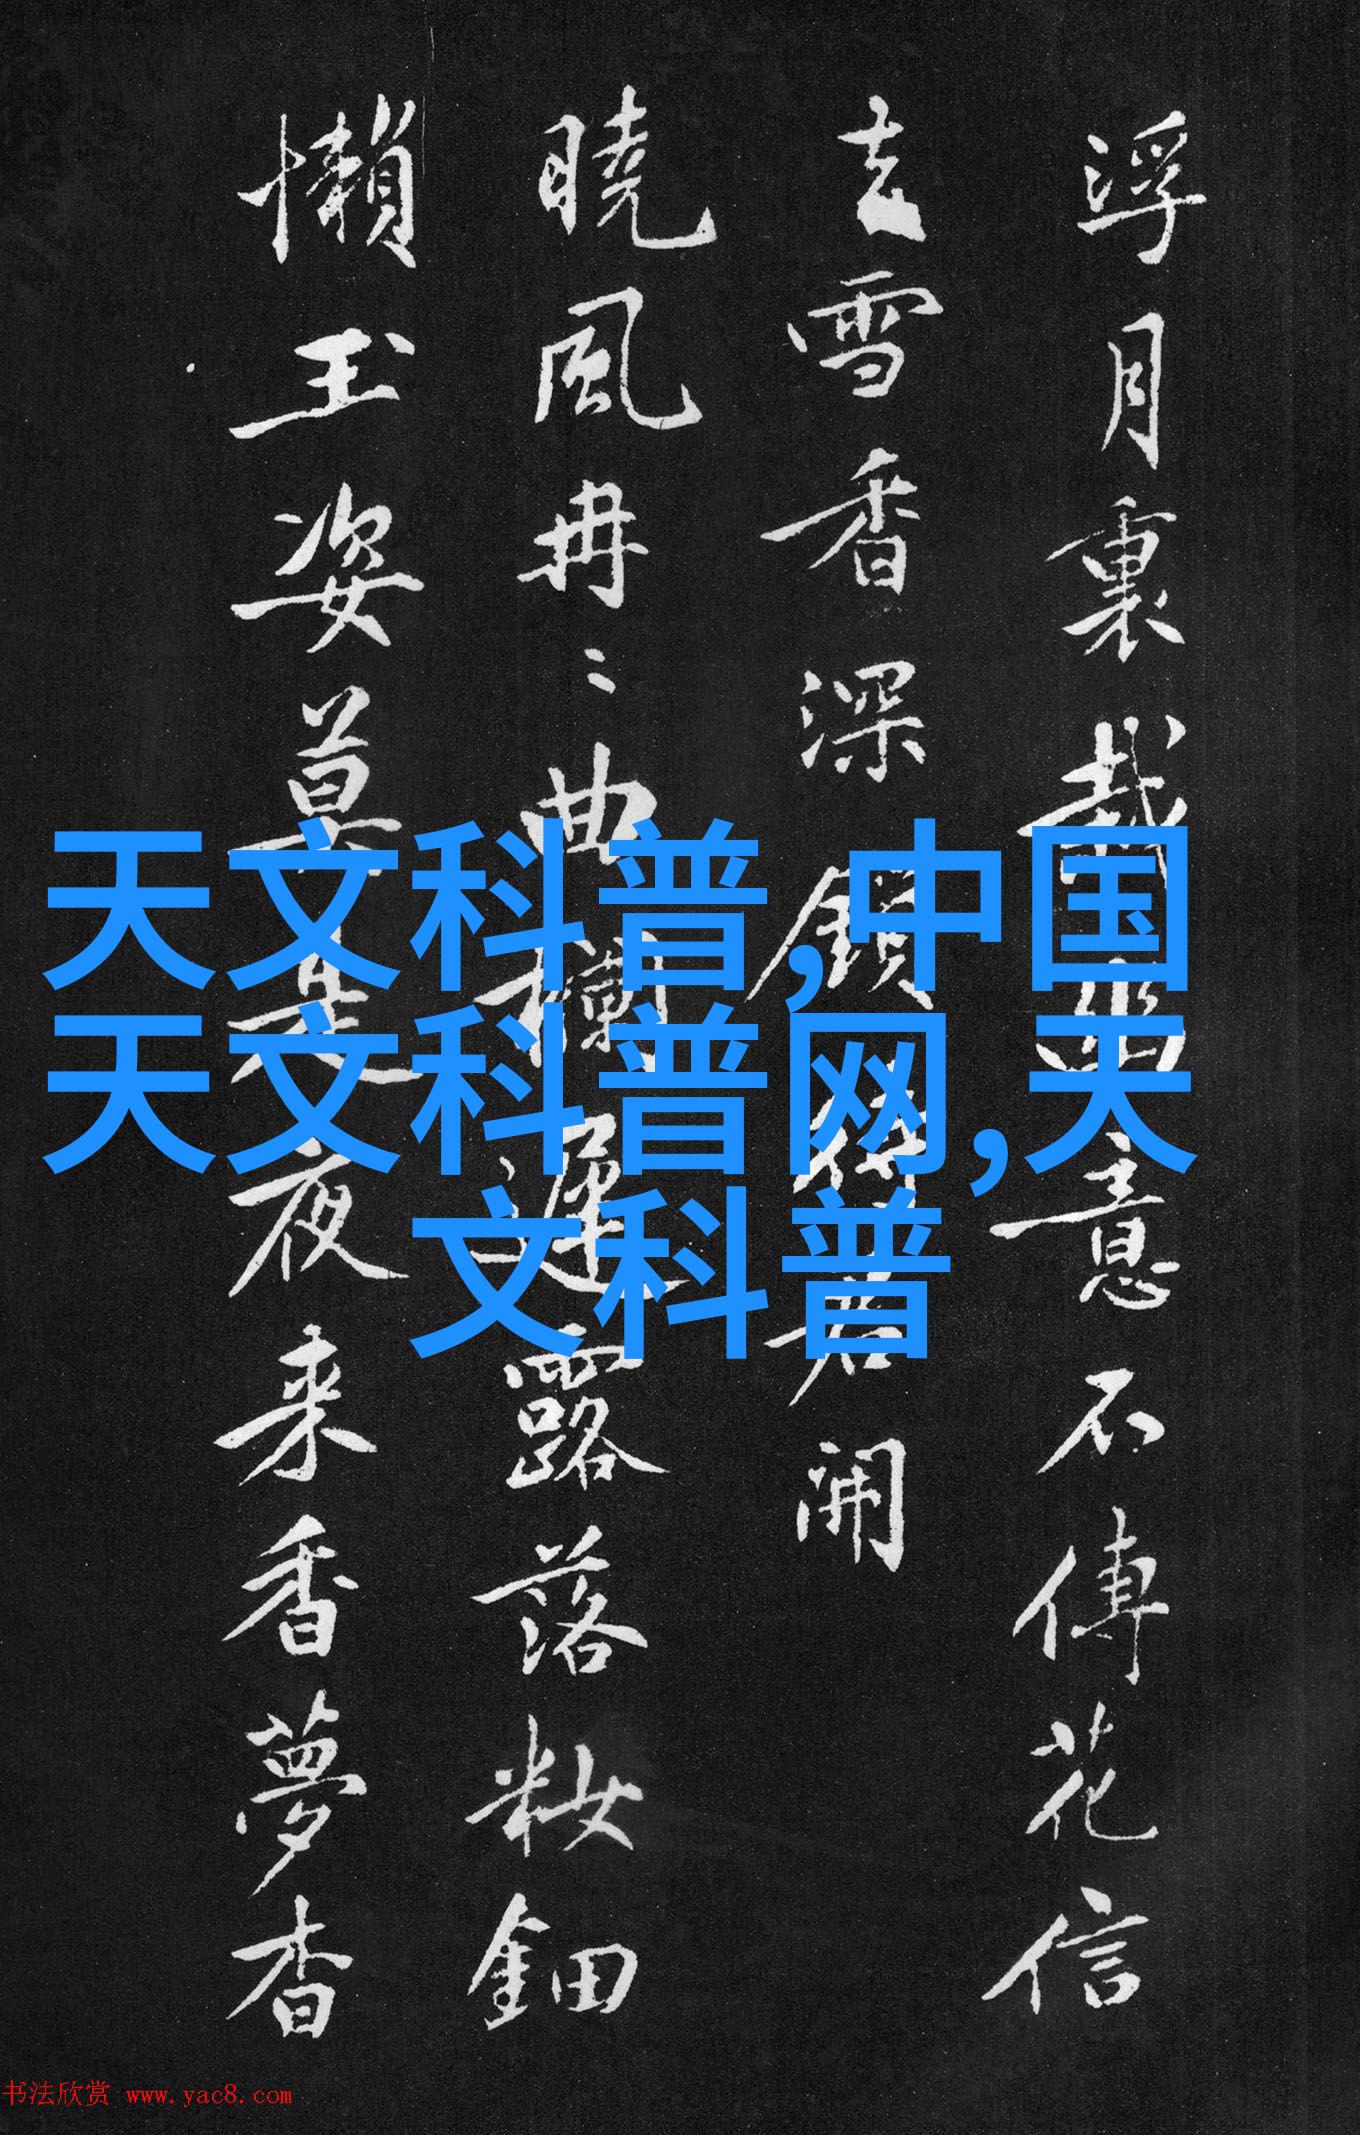 浮月裏栽培意不傳花信
去雪香深鎖待君開
曉風冉〻曲欄遲露落妝鈿
懶玉姿莫是夜来香夢杳
天文科普,中国
天文科普网,天
文科普
书法欣赏 www.yac8.com